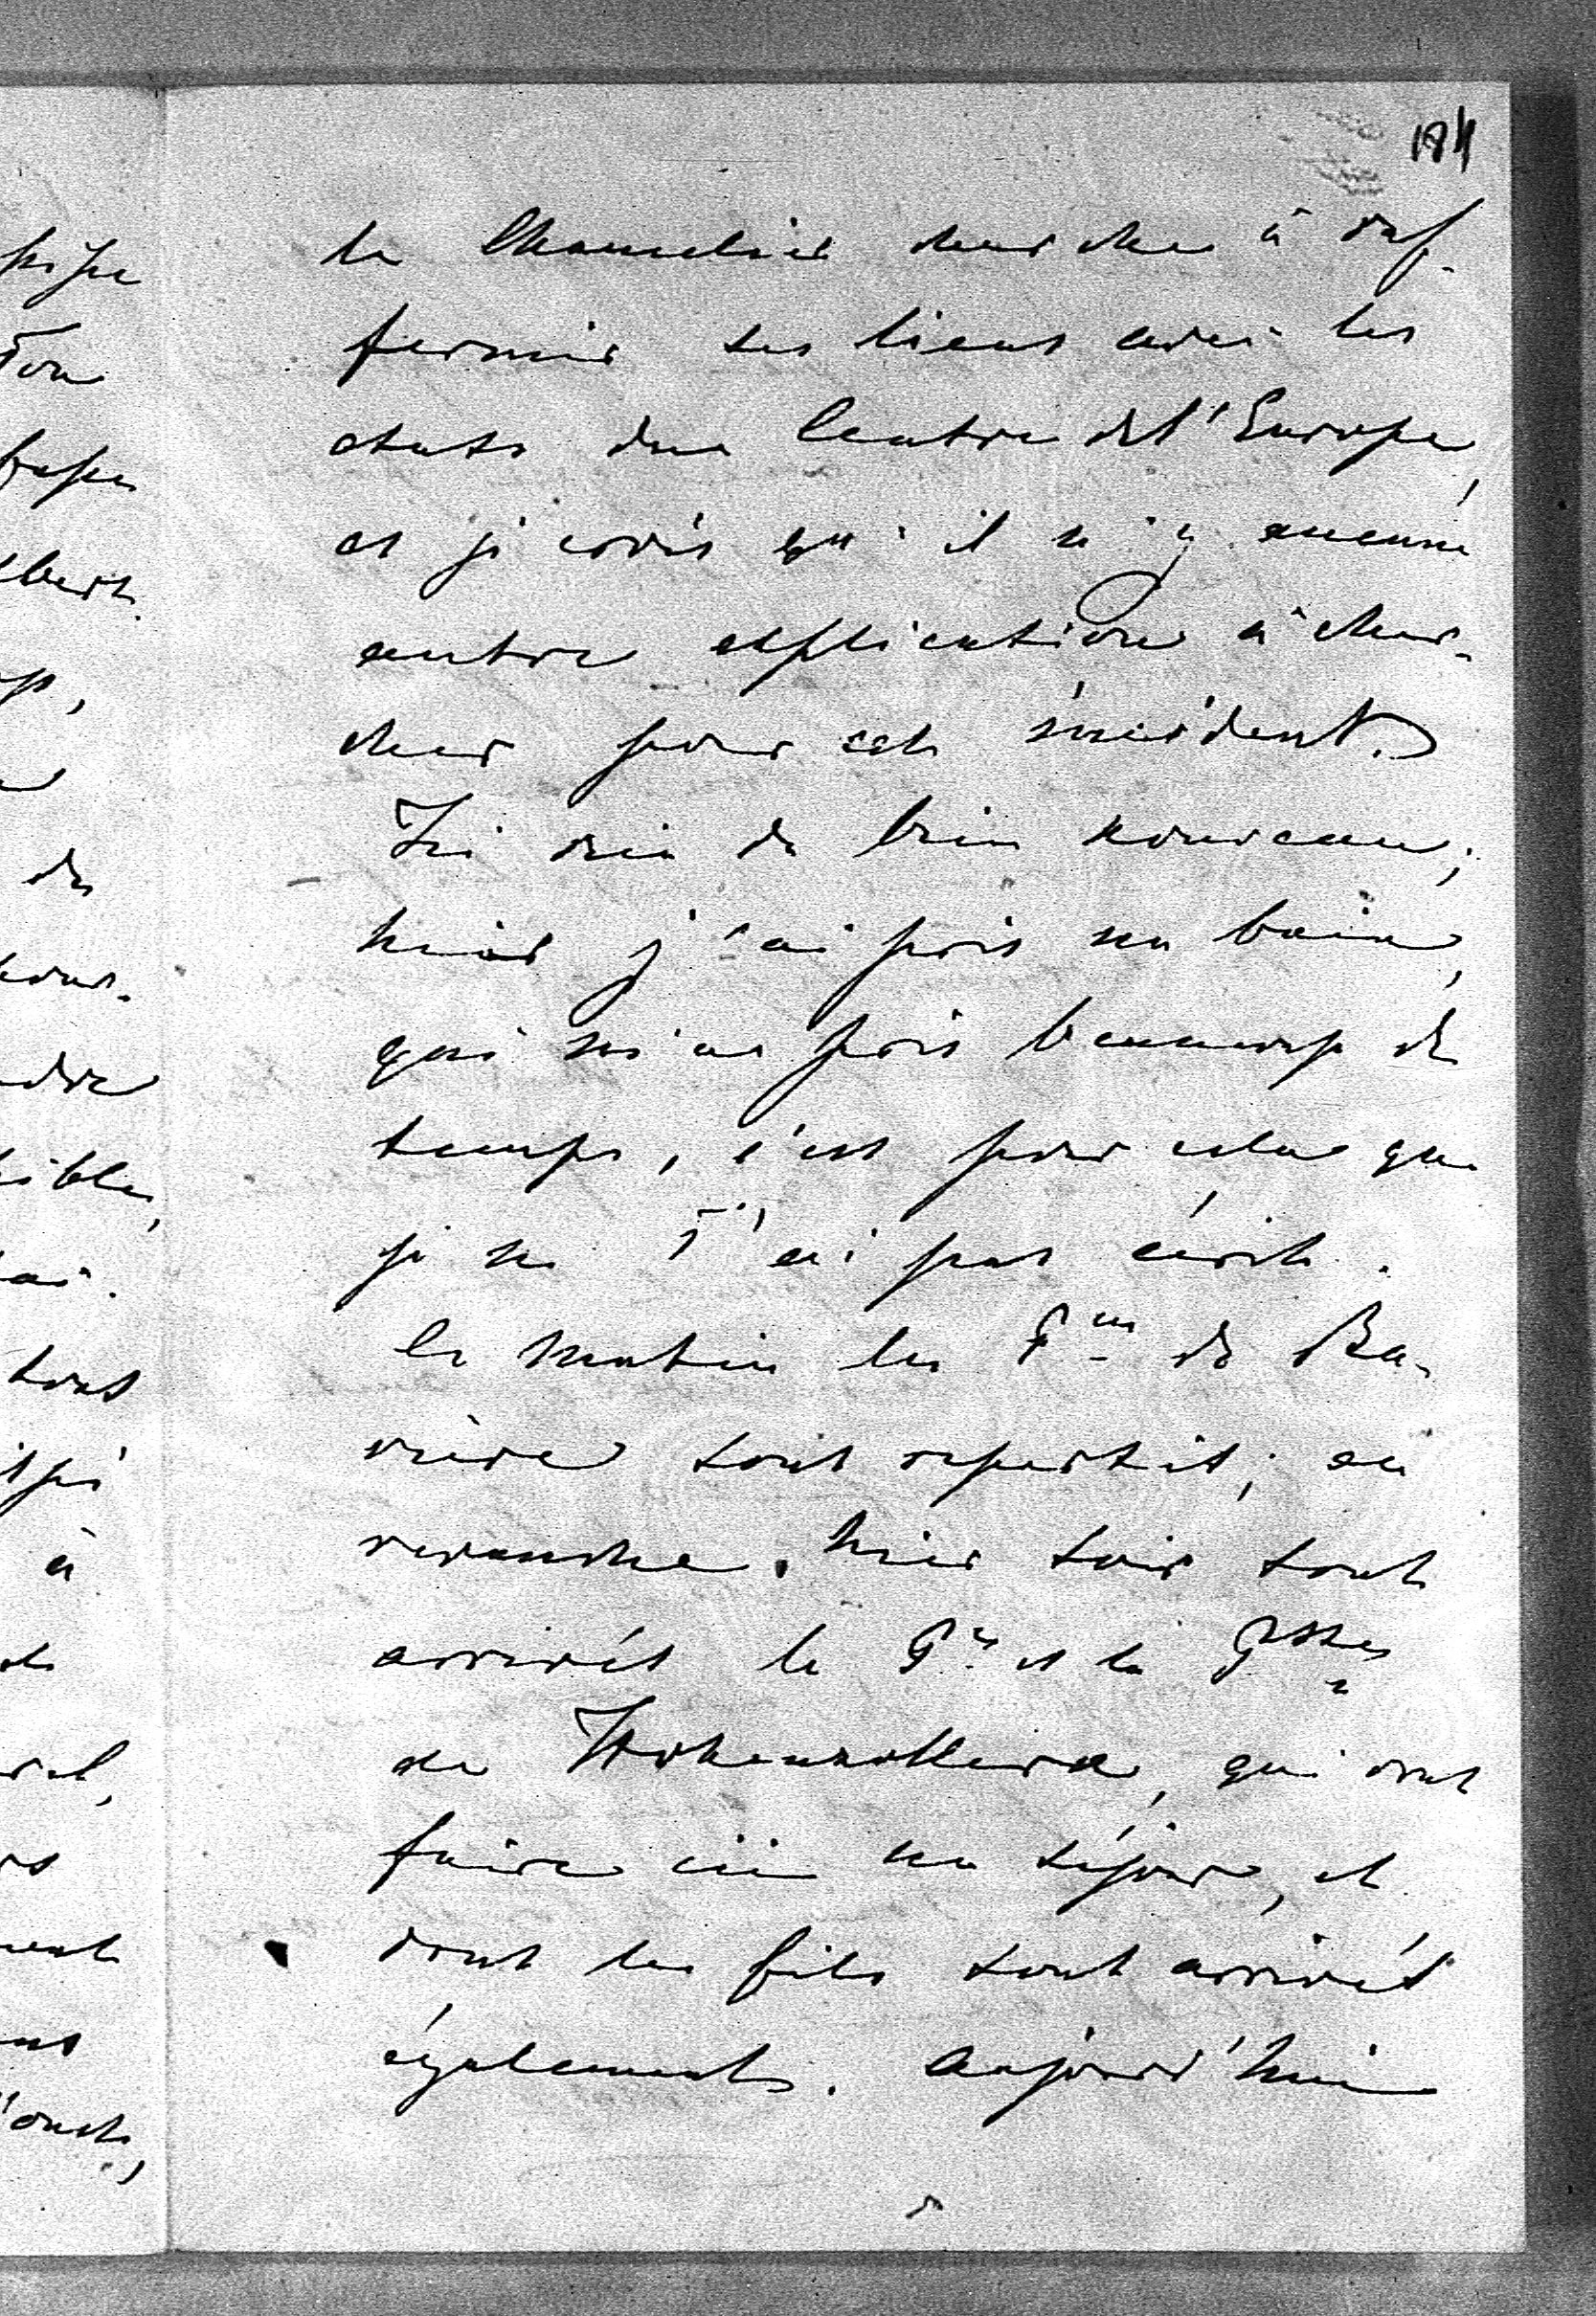 184
le Chancelier cherche à raf-
fermir ses liens avec les
états du Centre de l'Europe,
et je crois qu'il n'y aucune
autre explication à cher-
cher pour cet incident.
Ici rien de bien nouveau;
hier j'ai pris un bain,
qui m'a pris beaucoup de
temps, c'est pour cela que
je ne T'ai pas écrit.
Ce matin les Pces de Ba-
vière sont repartis; en
revanche, hier soir sont
arrivés le Pce et la Pesse
de Hohenzollern, qui vont
faire ici un séjour, et
dont les fils sont arrivés
également. Aujourd'hui